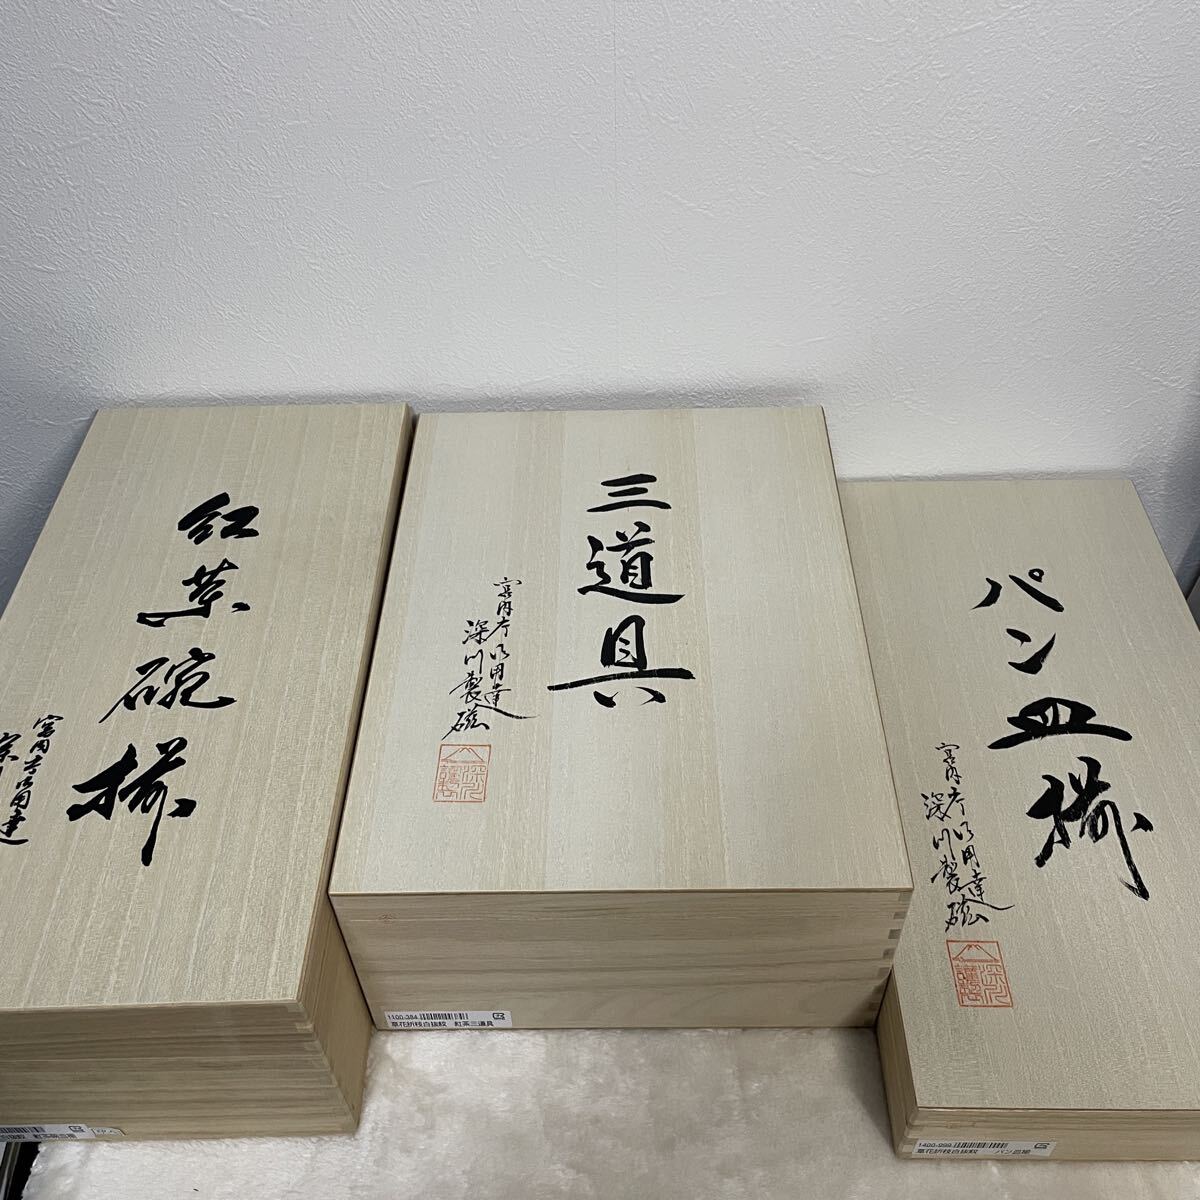 紅茶碗揃
宮内庁御用達
深川
三道具
宮内庁御用達
深川製磁
深川
謹製
1100-384
草花折枝白抜紋 紅茶三道具
パン皿揃
宮内庁御用達
深川製磁
深川
謹製
1400-999
草花折枝白抜紋 パン皿揃
白抜紋 紅茶碗皿揃